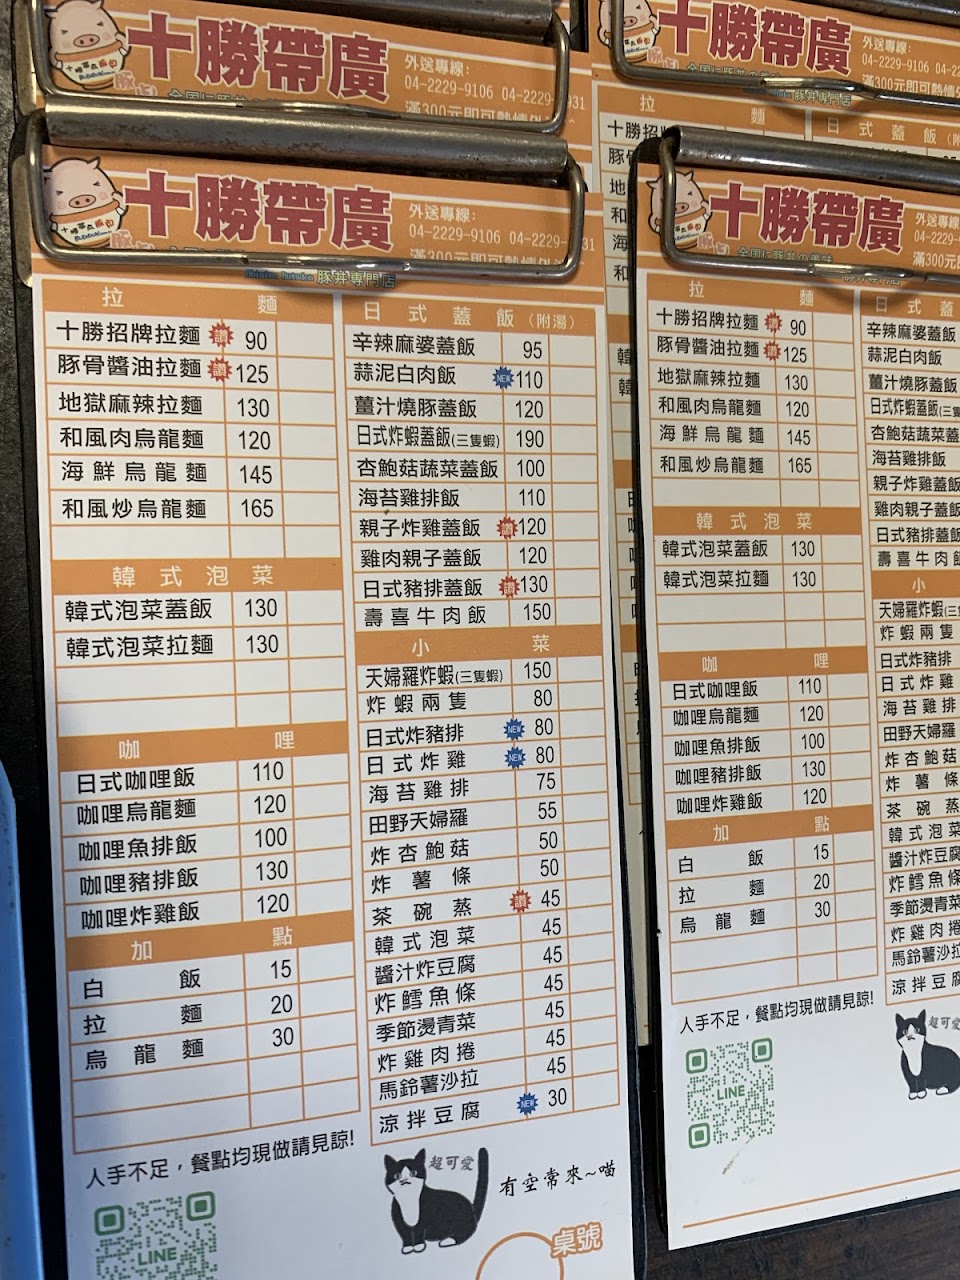 十勝帶廣
外送專線:
04-2229-9106 04-2229-
滿300元即可熱情外
十勝帶廣
豚丼專門店
拉 麵
日 式 蓋 飯
十勝帶廣
外送專線:
04-2229-9106 04-2229-
滿300元即可熱情外
豚丼專門店
拉 麵
十勝招牌拉麵 讚 90
豚骨醬油拉麵 讚 125
地獄麻辣拉麵 130
和風肉烏龍麵 120
海鮮烏龍麵 145
和風炒烏龍麵 165
韓 式 泡 菜
韓式泡菜蓋飯 130
韓式泡菜拉麵 130
咖 哩
日式咖哩飯 110
咖哩烏龍麵 120
咖哩魚排飯 100
咖哩豬排飯 130
咖哩炸雞飯 120
加 點
白 飯 15
拉 麵 20
烏 龍 麵 30
人手不足，餐點均現做請見諒!
LINE
日 式 蓋 飯 (附湯)
辛辣麻婆蓋飯 95
蒜泥白肉飯 NEW 110
薑汁燒豚蓋飯 120
日式炸蝦蓋飯(三隻蝦) 190
杏鮑菇蔬菜蓋飯 100
海苔雞排飯 110
親子炸雞蓋飯 讚 120
雞肉親子蓋飯 120
日式豬排蓋飯 讚 130
壽喜牛肉飯 150
小 菜
天婦羅炸蝦(三隻蝦) 150
炸蝦兩隻 80
日式炸豬排 NEW 80
日式炸雞 NEW 80
海苔雞排 75
田野天婦羅 55
炸杏鮑菇 50
炸薯條 50
茶碗蒸 讚 45
韓式泡菜 45
醬汁炸豆腐 45
炸鱈魚條 45
季節燙青菜 45
炸雞肉捲 45
馬鈴薯沙拉 45
涼拌豆腐 NEW 30
超可愛
有空常來~喵
桌號
十勝帶廣
外送專線:
04-2229-
滿300元
拉 麵
十勝招牌拉麵 讚 90
豚骨醬油拉麵 讚 125
地獄麻辣拉麵 130
和風肉烏龍麵 120
海鮮烏龍麵 145
和風炒烏龍麵 165
韓 式 泡 菜
韓式泡菜蓋飯 130
韓式泡菜拉麵 130
咖 哩
日式咖哩飯 110
咖哩烏龍麵 120
咖哩魚排飯 100
咖哩豬排飯 130
咖哩炸雞飯 120
加 點
白 飯 15
拉 麵 20
烏 龍 麵 30
人手不足，餐點均現做請見諒!
LINE
日 式
辛辣麻婆蓋飯
蒜泥白肉飯
薑汁燒豚蓋飯
日式炸蝦蓋飯(三
杏鮑菇蔬菜蓋
海苔雞排飯
親子炸雞蓋飯
雞肉親子蓋飯
日式豬排蓋飯
壽喜牛肉飯
小
天婦羅炸蝦(三
炸蝦兩隻
日式炸豬排
日式炸雞
海苔雞排
田野天婦羅
炸杏鮑菇
炸薯條
茶碗蒸
韓式泡菜
醬汁炸豆腐
炸鱈魚條
季節燙青菜
炸雞肉捲
馬鈴薯沙拉
涼拌豆腐
超可愛